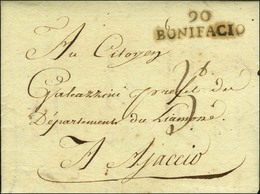 90
BONIFACIO
Au Citoyen
Galeazzini préfet du
Département du Liamone
A Ajaccio